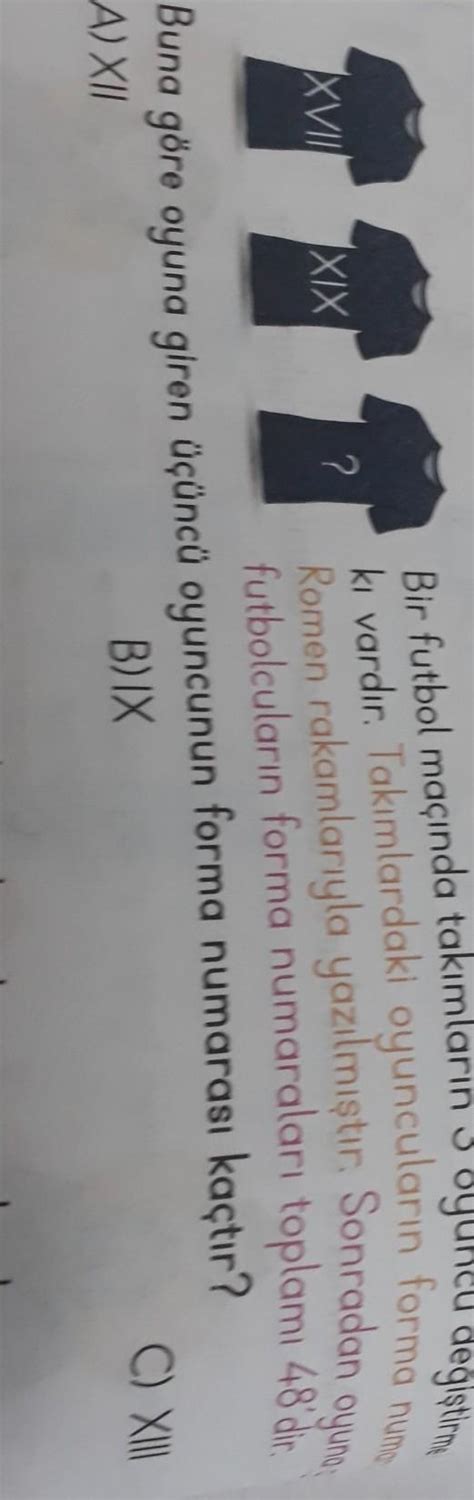 Bir futbol maçında takımların 3 oyuncu değiştirme
kı vardır. Takımlardaki oyuncuların forma numa
Romen rakamlarıyla yazılmıştır. Sonradan oyuna
futbolcuların forma numaraları toplamı 48'dir.
XVII XIX ?
Buna göre oyuna giren üçüncü oyuncunun forma numarası kaçtır?
A) XII B) IX C) XIII